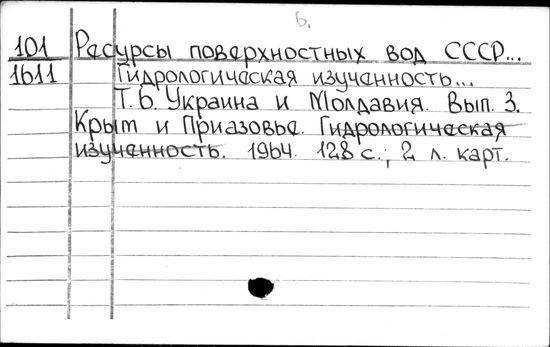 6.
101 Ресурсы поверхностных вод СССР...
1611 Гидрологическая изученность...
Т.6. Украина и Молдавия. Вып. 3.
Крым и Приазовье. Гидрологическая
изученность. 1964. 128 с.; 2 л. карт.